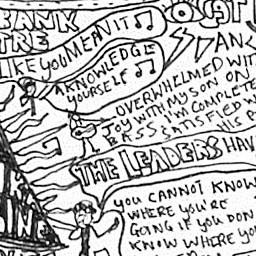 BANK
TRE
LIKE YOU MEAN IT
AN
A KNOWLEDGE
YOURSELF
OVERWHELMED WIT
JOY WITH MY SON ON
BASS I'M COMPLETE
SATISFIED W
HIS P
THE LEADERS HAV
YOU CANNOT KNOW
WHERE YOU'RE
GOING IF YOU DON
KNOW WHERE YO